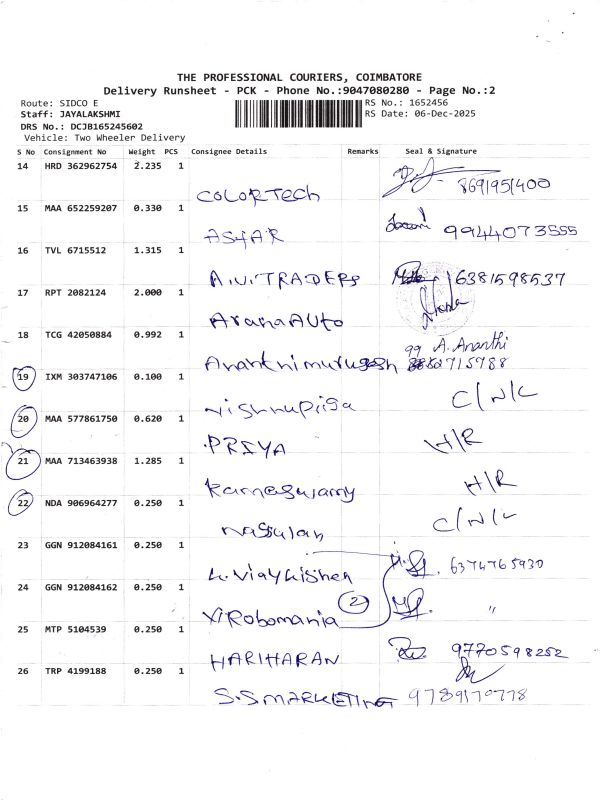 THE PROFESSIONAL COURIERS, COIMBATORE
Delivery Runsheet - PCK - Phone No.:9047080280 - Page No.:2
Route: SIDCO E
RS No.: 1652456
Staff: JAYALAKSHMI
RS Date: 06-Dec-2025
DRS No.: DCJB165245602
Vehicle: Two Wheeler Delivery
S No Consignment No Weight PCS Consignee Details Remarks Seal & Signature
14 HRD 362962754 2.235 1
COLORTECH 8691951400
15 MAA 652259207 0.330 1
ASHAR 9944073555
16 TVL 6715512 1.315 1
A.V.TRADERS 16381598537
17 RPT 2082124 2.000 1
Arana Auto
18 TCG 42050884 0.992 1
A. Ananthi
Ananthimurugesh 715788
19 IXM 303747106 0.100 1
C/N/L
20 MAA 577861750 0.620 1
PRIYA H/R
21 MAA 713463938 1.285 1
Rameswamy H/R
22 NDA 906964277 0.250 1
C/N/L
23 GGN 912084161 0.250 1
6374765930
24 GGN 912084162 0.250 1
2 "
Robomania
25 MTP 5104539 0.250 1
HARIHARAN 9770598252
26 TRP 4199188 0.250 1
S.S MARKETING 9789170778